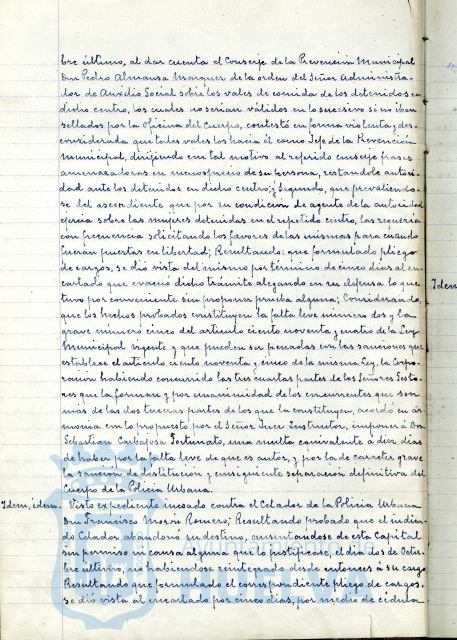 bre último, al dar cuenta el Conserje de la Prevención Municipal
Don Pedro Almansa Marquez de la orden del Señor Administra-
dor de Auxilio Social sobre los vales de comida de los detenidos en
dicho centro, los cuales no serian válidos en lo sucesivo si no iban
sellados por la Oficina del Cuerpo, contestó en forma violenta y des-
considerada que tales vales los hacia él como Jefe de la Prevención
municipal, dirigiendo con tal motivo al referido conserje frases
amenazadoras en menosprecio de su persona, restandole autori-
dad ante los detenidos en dicho centro; y Segundo, que prevaliendo-
se del ascendiente que por su condición de agente de la autoridad
ejercia sobre las mujeres detenidas en el repetido centro, las requeria
con frecuencia solicitando los favores de las mismas para cuando
fueran puestas en libertad; Resultando: que formulado pliego
de cargos, se dió vista del mismo por término de cinco dias al en-
cartado que evacuó dicho trámite alegando en su defensa lo que
Idem
tuvo por conveniente sin proponer prueba alguna; Considerando,
que los hechos probados constituyen la falta leve número dos y la
grave número cinco del articulo ciento noventa y cuatro de la Ley
Municipal vigente y que pueden ser penadas con las sanciones que
establece el articulo ciento noventa y cinco de la misma Ley, la Corpo-
ración habiendo concurrido las tres cuartas partes de los Señores Gesto-
res que la forman y por unanimidad de los concurrentes que son
mas de las dos terceras partes de los que la constituyen, acordó en ar-
monia con lo propuesto por el Señor Juez Instructor, imponer á Don
Sebastian Carbajosa Fortunato, una multa equivalente á diez dias
de haber por la falta leve de que es autor, y por la de caracter grave
la sanción de destitución y consiguiente separación definitiva del
Cuerpo de la Policia Urbana.
Idem, idem. Visto expediente incoado contra el Celador de la Policia Urbana
Don Francisco Morón Romero; Resultando probado que el indica-
do Celador abandonó su destino, ausentandose de esta Capital
sin permiso ni causa alguna que lo justificase, el dia dos de Octu-
bre último, no habiendose reintegrado desde entonces á su cargo
Resultando que formulado el correspondiente pliego de cargos,
se dió vista al encartado por cinco dias, por medio de cédula